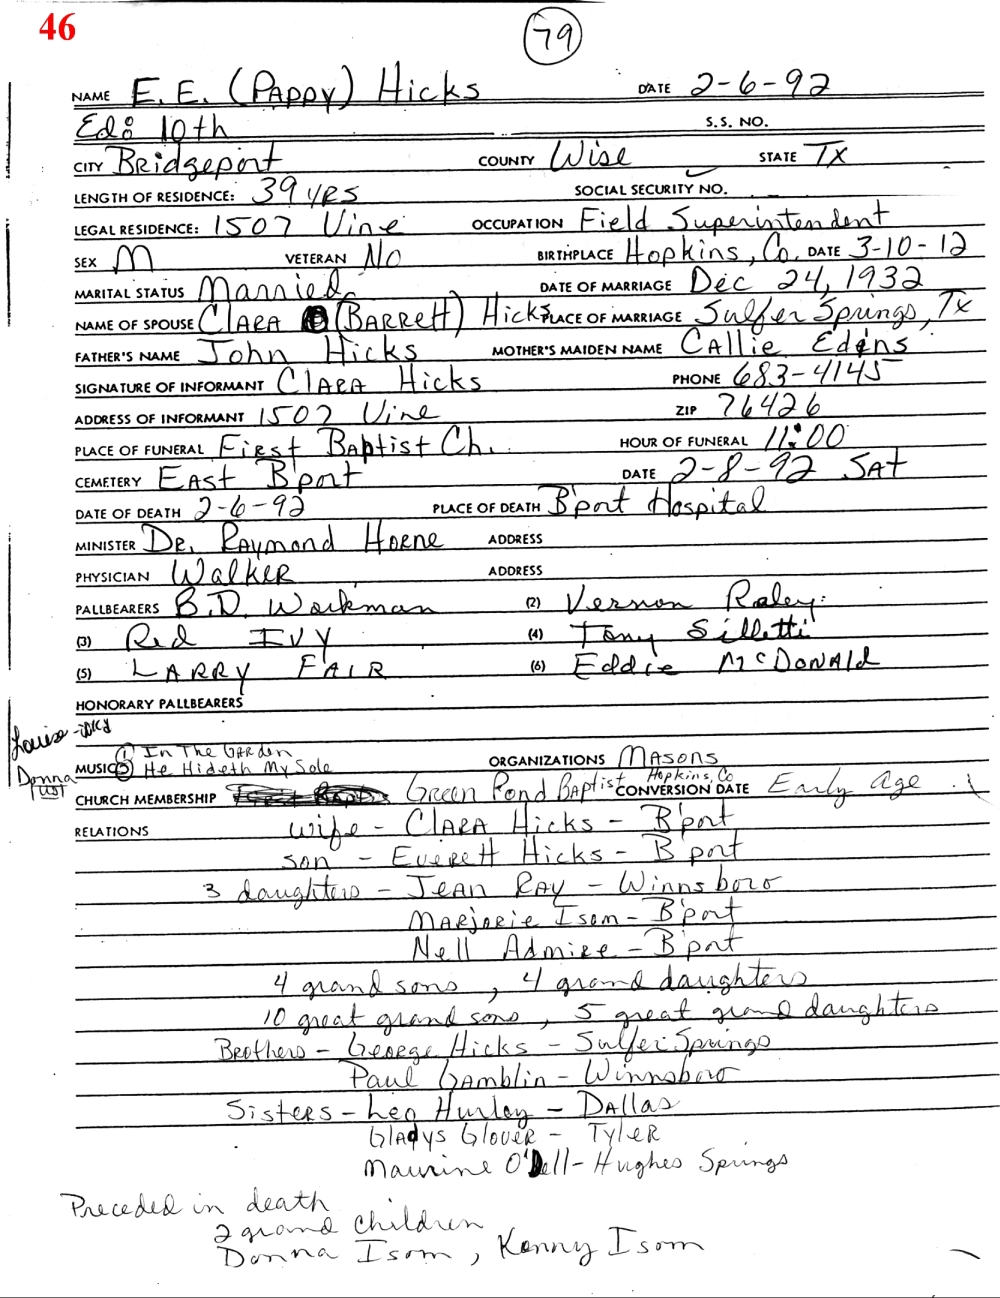 46
79
NAME E.E. (PAPPY) Hicks DATE 2-6-92
Ed: 10th S.S. NO.
CITY Bridgeport COUNTY Wise STATE Tx
LENGTH OF RESIDENCE: 39 yrs SOCIAL SECURITY NO.
LEGAL RESIDENCE: 1507 Vine OCCUPATION Field Superintendent
SEX M VETERAN No BIRTHPLACE Hopkins, Co. DATE 3-10-12
MARITAL STATUS Married DATE OF MARRIAGE Dec 24, 1932
NAME OF SPOUSE CLARA (BARRETT) Hicks PLACE OF MARRIAGE Sulfer Springs, Tx
FATHER'S NAME John Hicks MOTHER'S MAIDEN NAME CALLIE Edens
SIGNATURE OF INFORMANT CLARA Hicks PHONE 683-4145
ADDRESS OF INFORMANT 1507 Vine ZIP 76426
PLACE OF FUNERAL First Baptist Ch. HOUR OF FUNERAL 11:00
CEMETERY EAST B'port DATE 2-8-92 SAT
DATE OF DEATH 2-6-92 PLACE OF DEATH B'port Hospital
MINISTER DR. RAymond HORNE ADDRESS
PHYSICIAN WALKER ADDRESS
PALLBEARERS B.D. Workman (2) Vernon Raley
(3) Red IVY (4) Tony Silletti
(5) LARRY FAIR (6) Eddie McDONALD
HONORARY PALLBEARERS
Louise
MUSIC ① In The GARden ORGANIZATIONS MASONS
② He Hideth My Sole
Donna
CHURCH MEMBERSHIP Green Pond BAPtist Hopkins, Co CONVERSION DATE Early Age
RELATIONS wife - CLARA Hicks - B'port
son - EvereTT Hicks - B'port
3 daughters - JEAN RAY - Winnsboro
MARjoRie Isom - B'port
Nell Admire - B'port
4 grand sons, 4 grand daughters
10 great grand sons, 5 great grand daughters
Brothers - George Hicks - Sulfer Springs
Paul GAmblin - Winnsboro
SisteRs - Leo Hurley - DALLAS
GlAdys GloveR - TyleR
Maurine O'Dell - Hughes Springs
Preceded in death
2 grand children
Donna Isom, Kenny Isom